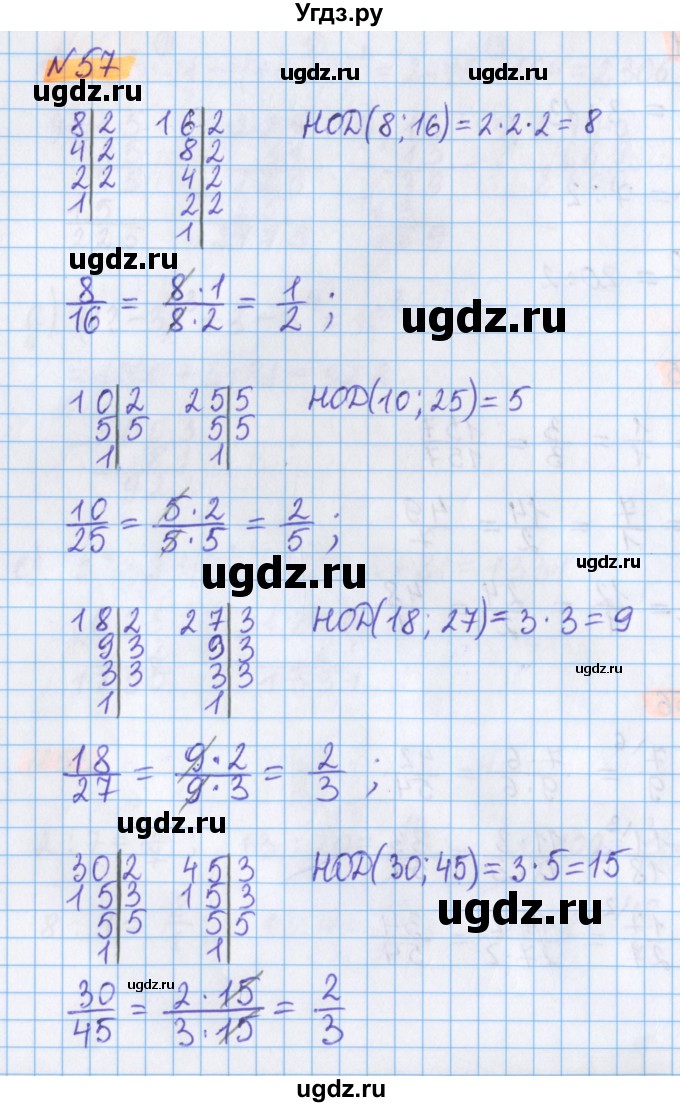 Угдз.ру
№57
ugdz.ru ugdz.ru ugdz.ru
8|2 16|2 НОД(8; 16) = 2·2·2 = 8
4|2 8|2
2|2 4|2
1| 2|2
1|
ugdz.ru
8/16 = 8·1/8·2 = 1/2 ;
ugdz.ru
10|2 25|5 НОД(10; 25) = 5
5|5 5|5
1| 1|
10/25 = 5·2/5·5 = 2/5 ;
ugdz.ru ugdz.ru
18|2 27|3 НОД(18; 27) = 3·3 = 9
9|3 9|3
3|3 3|3
1| 1|
ugdz.ru
18/27 = 9·2/9·3 = 2/3 ;
ugdz.ru
30|2 45|3 НОД(30; 45) = 3·5 = 15
15|3 15|3
5|5 5|5
1| 1|
ugdz.ru
ugdz.ru
30/45 = 2·15/3·15 = 2/3
ugdz.ru